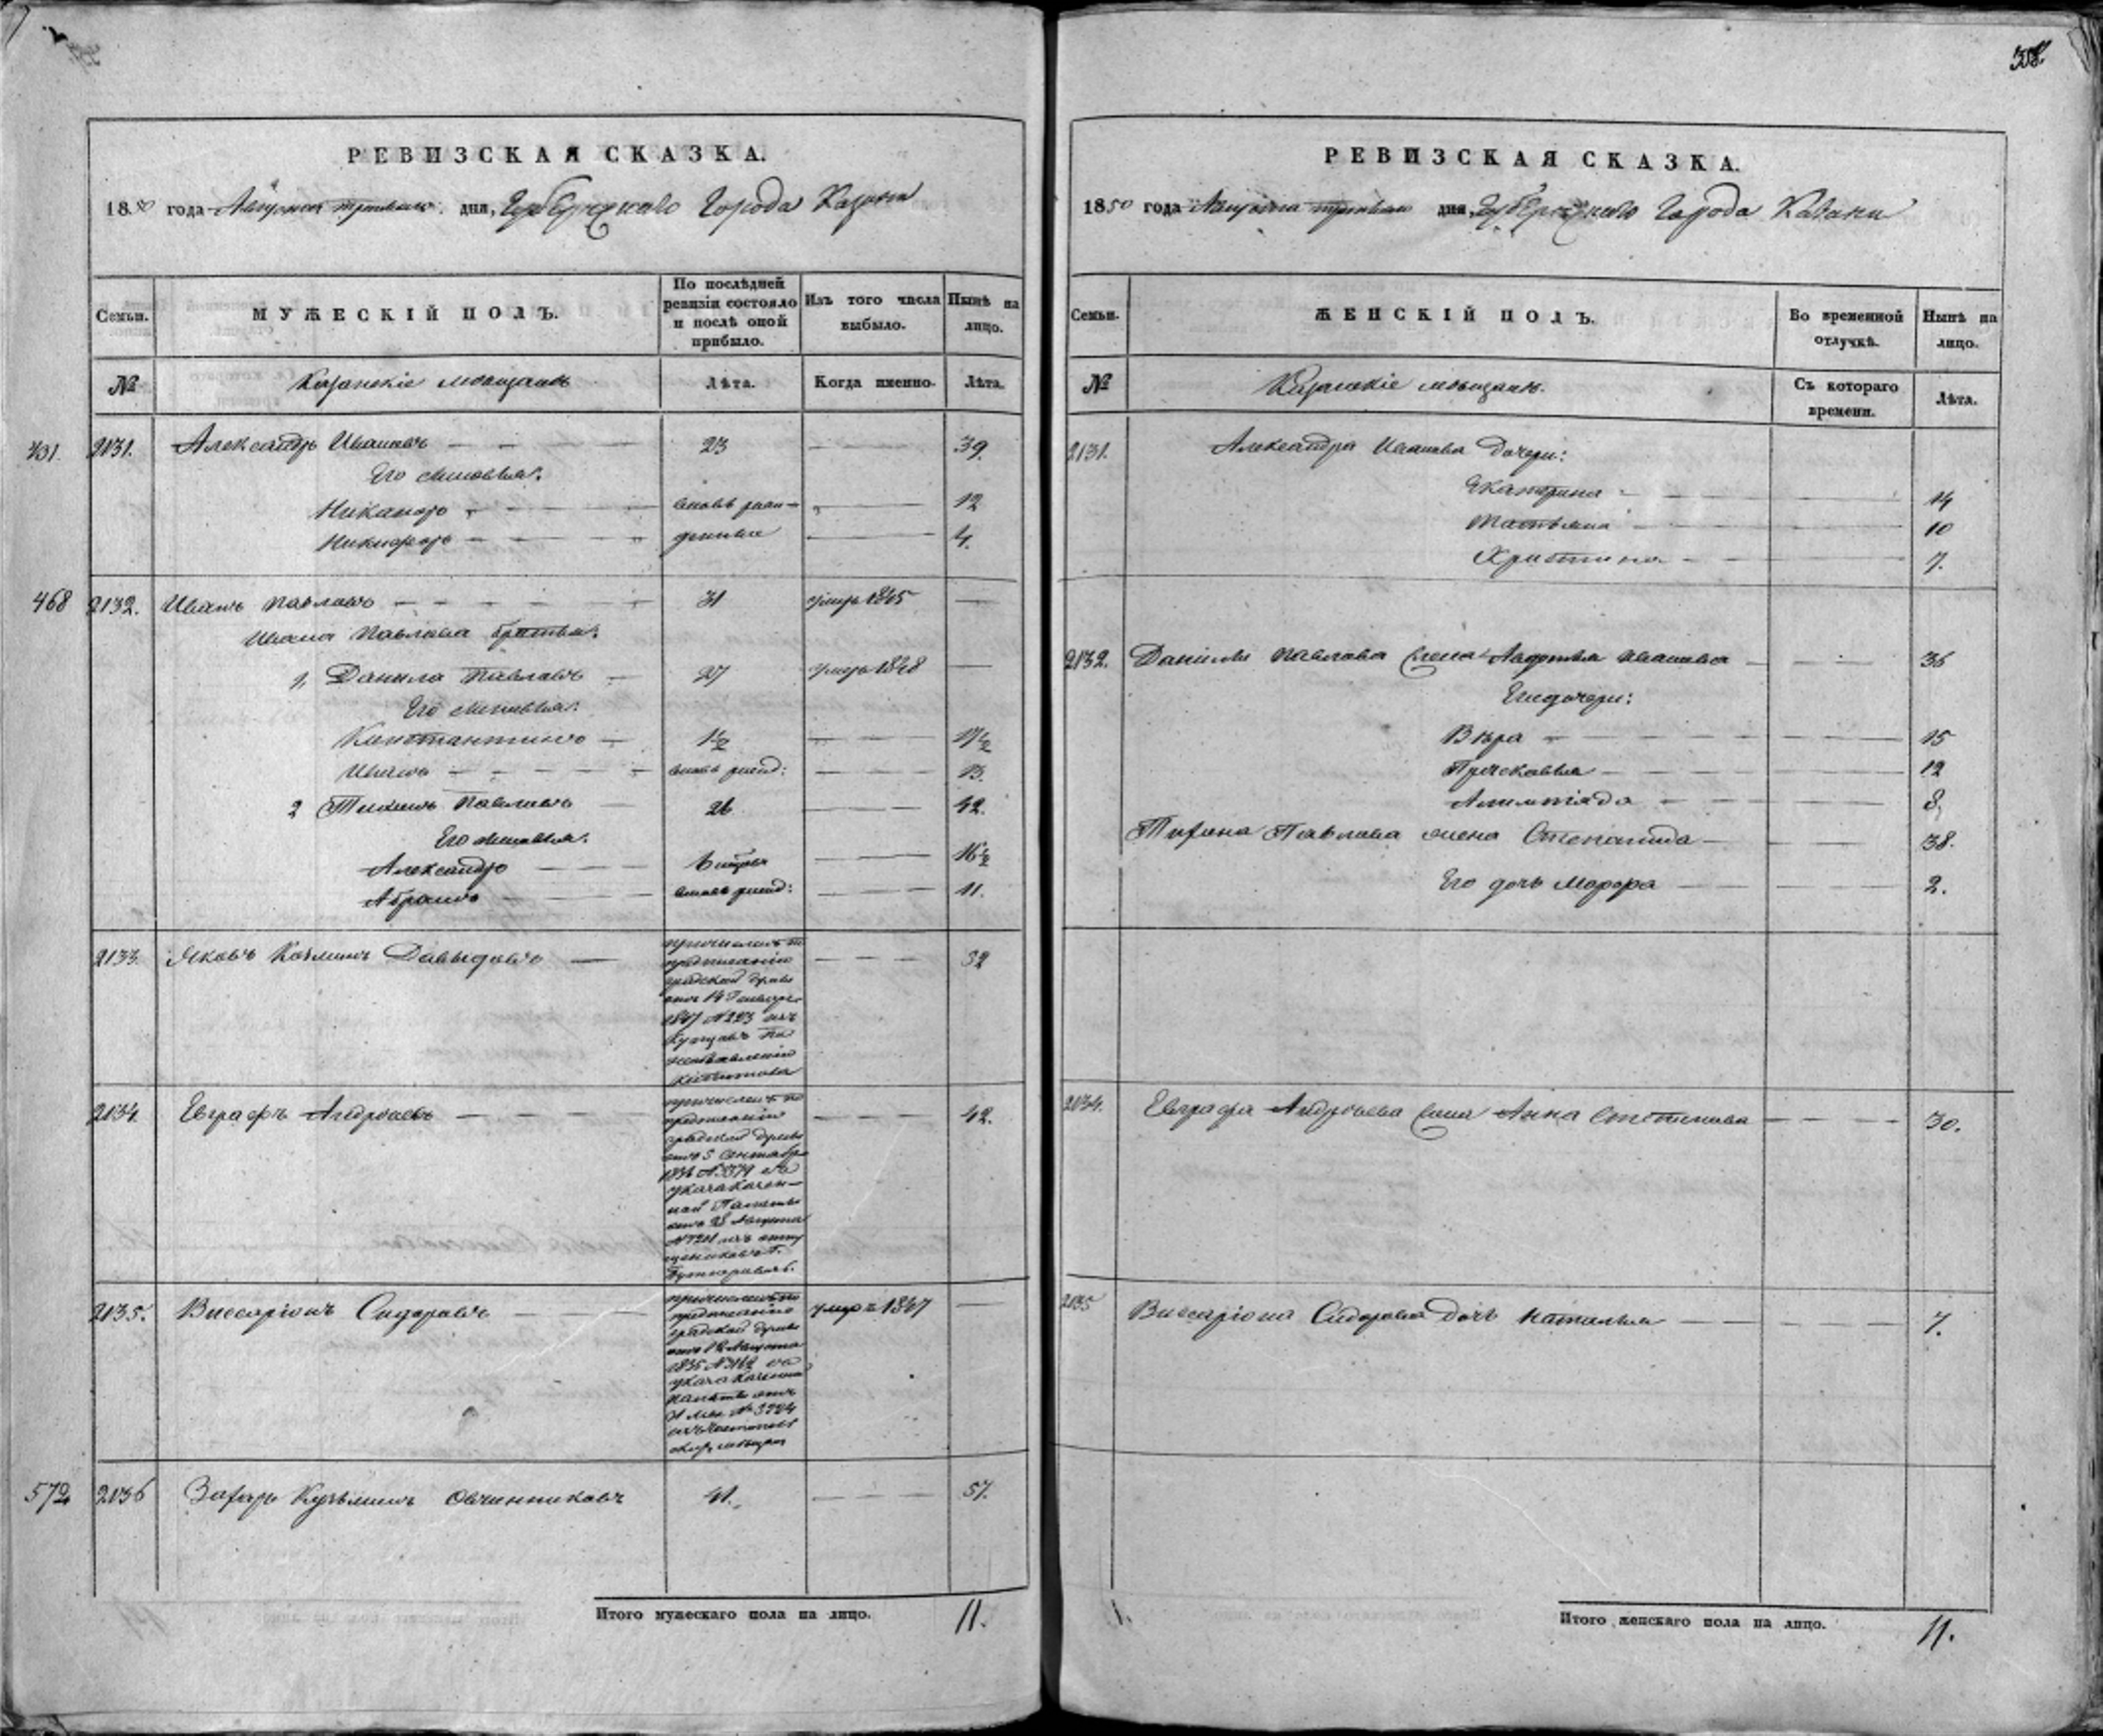 358.
РЕВИЗСКАЯ СКАЗКА.
1850 года Августа третьяго дня, Губернскаго Города Казани
Семьи.
МУЖЕСКІЙ ПОЛЪ.
По послѣдней ревизіи состояло и послѣ оной прибыло.
Изъ того числа выбыло.
Нынѣ на лицо.
№
Казанскіе мѣщане
Лѣта.
Когда именно.
Лѣта.
2131. Александръ Ивановъ 23 39.
Его сыновья:
Никаноръ вновь рож- 12
Никифоръ дены 4.
468 2132. Иванъ Павловъ 31 умеръ 1845
Ивана Павлова братья:
1, Данила Павловъ 27 умеръ 1848
Его сыновья:
Константинъ 1½ 17½
Иванъ вновь рожд: 13.
2 Тихонъ Павловъ 26 42.
Его сыновья:
Александръ 6 мѣсяц 16½
Абрамъ вновь рожд: 11.
2133. Яковъ Козминъ Давыдовъ 32
причисленъ по
предписанію
градской думы
отъ 14 Генваря
1847 № 223 изъ
купцовъ по
необъявленію
капитала
2134. Евграфъ Андреевъ 42.
причисленъ по
предписанію
градской думы
отъ 5 Сентября
указа казен-
ной Палаты
отъ 28 Августа
2135. Виссаріонъ Сидоровъ умеръ 1847
причисленъ по
предписанію
градской думы
отъ 12 Августа
1835 № 3162 
указа казенной
палаты отъ
№ 3224
572 2136 Захаръ Кузьминъ Овчинниковъ 41. 57.
Итого мужескаго пола на лицо. 11.
РЕВИЗСКАЯ СКАЗКА.
1850 года Августа третьяго дня, Губернскаго Города Казани
Семьи.
ЖЕНСКІЙ ПОЛЪ.
Во временной отлучкѣ.
Нынѣ на лицо.
№
Казанскіе мѣщане.
Съ котораго времени.
Лѣта.
2131. Александра Иванова дочери:
Екатерина 14
Татьяна 10
Христина 7.
2132. Данилы Павлова жена Авдотья Иванова 36
Его дочери:
Вѣра 15
Прасковья 12
Алимпіада 8,
Тихона Павлова жена Степанида 38.
Его дочь Марфа 2.
2134. Евграфа Андреева жена Анна Степанова 30.
2135 Виссаріона Сидорова дочь Наталья 7.
Итого женскаго пола на лицо. 11.